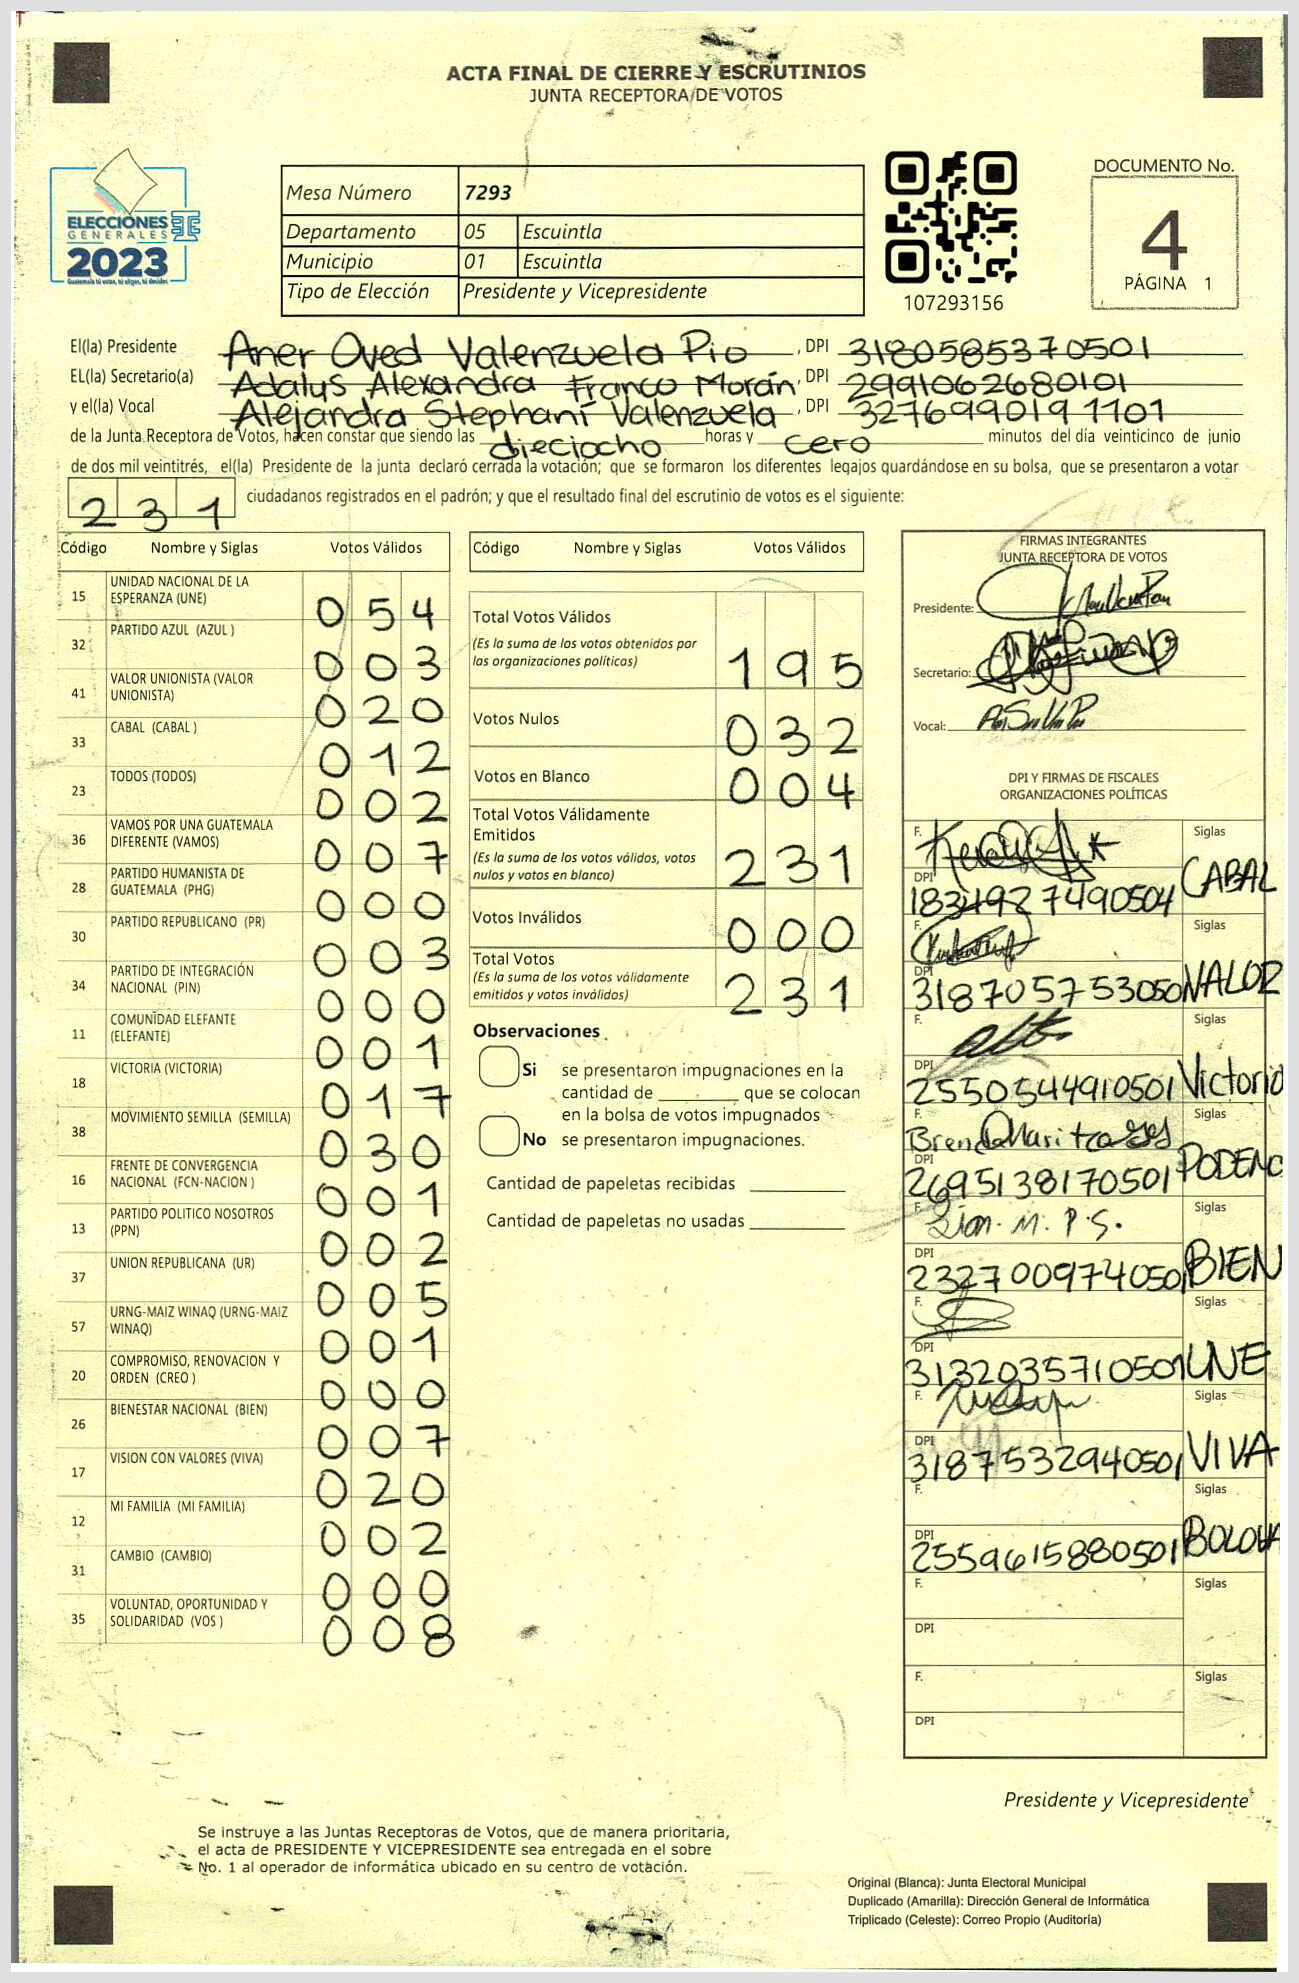 ACTA FINAL DE CIERRE Y ESCRUTINIOS
JUNTA RECEPTORA DE VOTOS
ELECCIONES
GENERALES
2023
Guatemala tú votas, tú eliges, tú decides
Mesa Número 7293
Departamento 05 Escuintla
Municipio 01 Escuintla
Tipo de Elección Presidente y Vicepresidente
107293156
DOCUMENTO No.
4
PÁGINA 1
El(la) Presidente Aner Oved Valenzuela Pio, DPI 3180585370501
EL(la) Secretario(a) Adalys Alexandra Franco Morán, DPI 2991062680101
y el(la) Vocal Alejandra Stephani Valenzuela, DPI 3276990191101
de la Junta Receptora de Votos, hacen constar que siendo las dieciocho horas y cero minutos del día veinticinco de junio
de dos mil veintitrés, el(la) Presidente de la junta declaró cerrada la votación; que se formaron los diferentes legajos guardándose en su bolsa, que se presentaron a votar
231 ciudadanos registrados en el padrón; y que el resultado final del escrutinio de votos es el siguiente:
Código Nombre y Siglas Votos Válidos
15 UNIDAD NACIONAL DE LA ESPERANZA (UNE) 054
32 PARTIDO AZUL (AZUL ) 003
41 VALOR UNIONISTA (VALOR UNIONISTA) 020
33 CABAL (CABAL ) 012
23 TODOS (TODOS) 002
36 VAMOS POR UNA GUATEMALA DIFERENTE (VAMOS) 007
28 PARTIDO HUMANISTA DE GUATEMALA (PHG) 000
30 PARTIDO REPUBLICANO (PR) 003
34 PARTIDO DE INTEGRACIÓN NACIONAL (PIN) 000
11 COMUNIDAD ELEFANTE (ELEFANTE) 001
18 VICTORIA (VICTORIA) 017
38 MOVIMIENTO SEMILLA (SEMILLA) 030
16 FRENTE DE CONVERGENCIA NACIONAL (FCN-NACION ) 001
13 PARTIDO POLITICO NOSOTROS (PPN) 002
37 UNION REPUBLICANA (UR) 005
57 URNG-MAIZ WINAQ (URNG-MAIZ WINAQ) 001
20 COMPROMISO, RENOVACION Y ORDEN (CREO ) 000
26 BIENESTAR NACIONAL (BIEN) 007
17 VISION CON VALORES (VIVA) 020
12 MI FAMILIA (MI FAMILIA) 002
31 CAMBIO (CAMBIO) 000
35 VOLUNTAD, OPORTUNIDAD Y SOLIDARIDAD (VOS ) 008
Código Nombre y Siglas Votos Válidos
Total Votos Válidos
(Es la suma de los votos obtenidos por
las organizaciones políticas) 195
Votos Nulos 032
Votos en Blanco 004
Total Votos Válidamente
Emitidos
(Es la suma de los votos válidos, votos
nulos y votos en blanco) 231
Votos Inválidos 000
Total Votos
(Es la suma de los votos válidamente
emitidos y votos inválidos) 231
Observaciones
Si se presentaron impugnaciones en la
cantidad de ________ que se colocan
en la bolsa de votos impugnados
No se presentaron impugnaciones.
Cantidad de papeletas recibidas
Cantidad de papeletas no usadas
FIRMAS INTEGRANTES
JUNTA RECEPTORA DE VOTOS
Presidente:
Secretario:
Vocal:
DPI Y FIRMAS DE FISCALES
ORGANIZACIONES POLÍTICAS
F. Siglas
DPI 1834927490504 CABAL
F. Siglas
DPI 318705753050 VALOR
F. Siglas
DPI 2550544910501 Victoria
F. Brenda Maritza Siglas
DPI 2695138170501 PODEMO
F. M. P. S. Siglas
DPI 2327009740501 BIEN
F. Siglas
DPI 3132035710501 UNE
F. Siglas
DPI 3187532940501 VIVA
F. Siglas
DPI 2559615880501
F. Siglas
DPI
F. Siglas
DPI
Presidente y Vicepresidente
Se instruye a las Juntas Receptoras de Votos, que de manera prioritaria,
el acta de PRESIDENTE Y VICEPRESIDENTE sea entregada en el sobre
No. 1 al operador de informática ubicado en su centro de votación.
Original (Blanca): Junta Electoral Municipal
Duplicado (Amarilla): Dirección General de Informática
Triplicado (Celeste): Correo Propio (Auditoría)